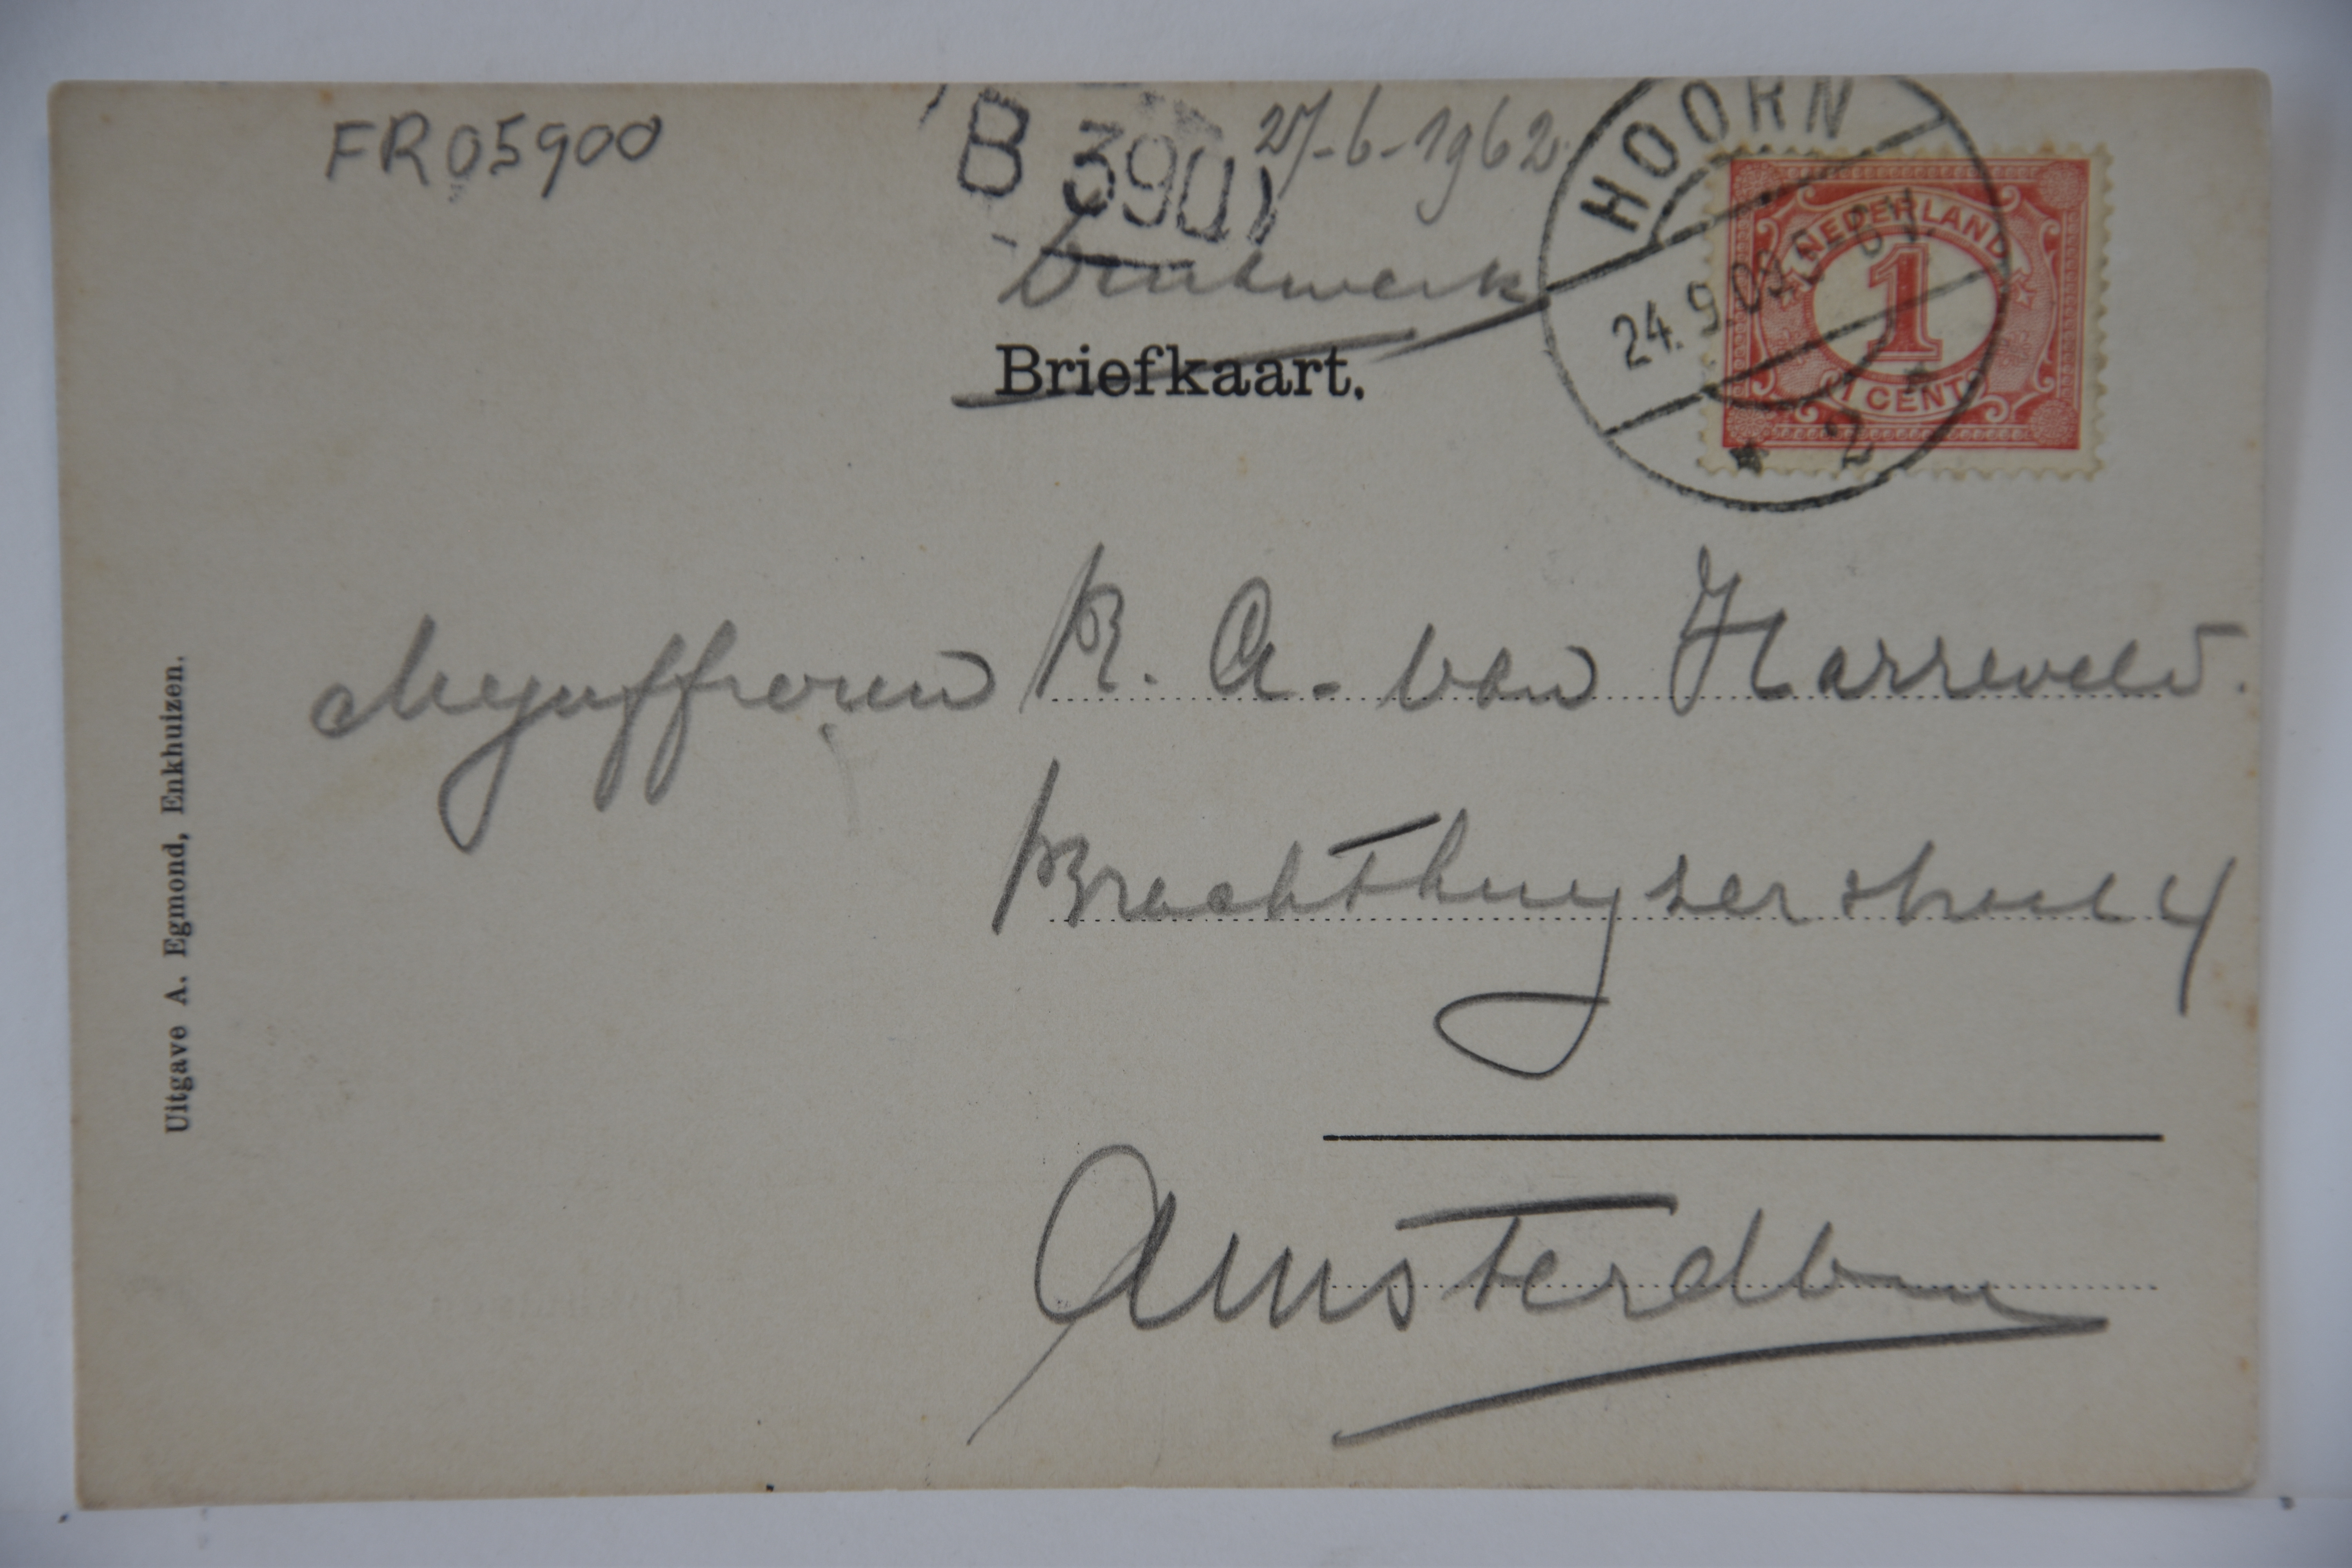 FR05900
B 3901
27-6-1962
HOORN
24.9.09
2
NEDERLAND
1
1 CENT
Drukwerk
Briefkaart.
Mejuffrouw R. A. van Harreveld.
Brachthuyzerstraat 4
Amsterdam
Uitgave A. Egmond, Enkhuizen.